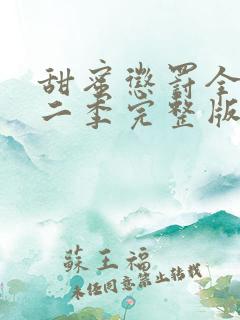 甜蜜懲罰全
二季完整版
蘇王福
未经同意禁止转载